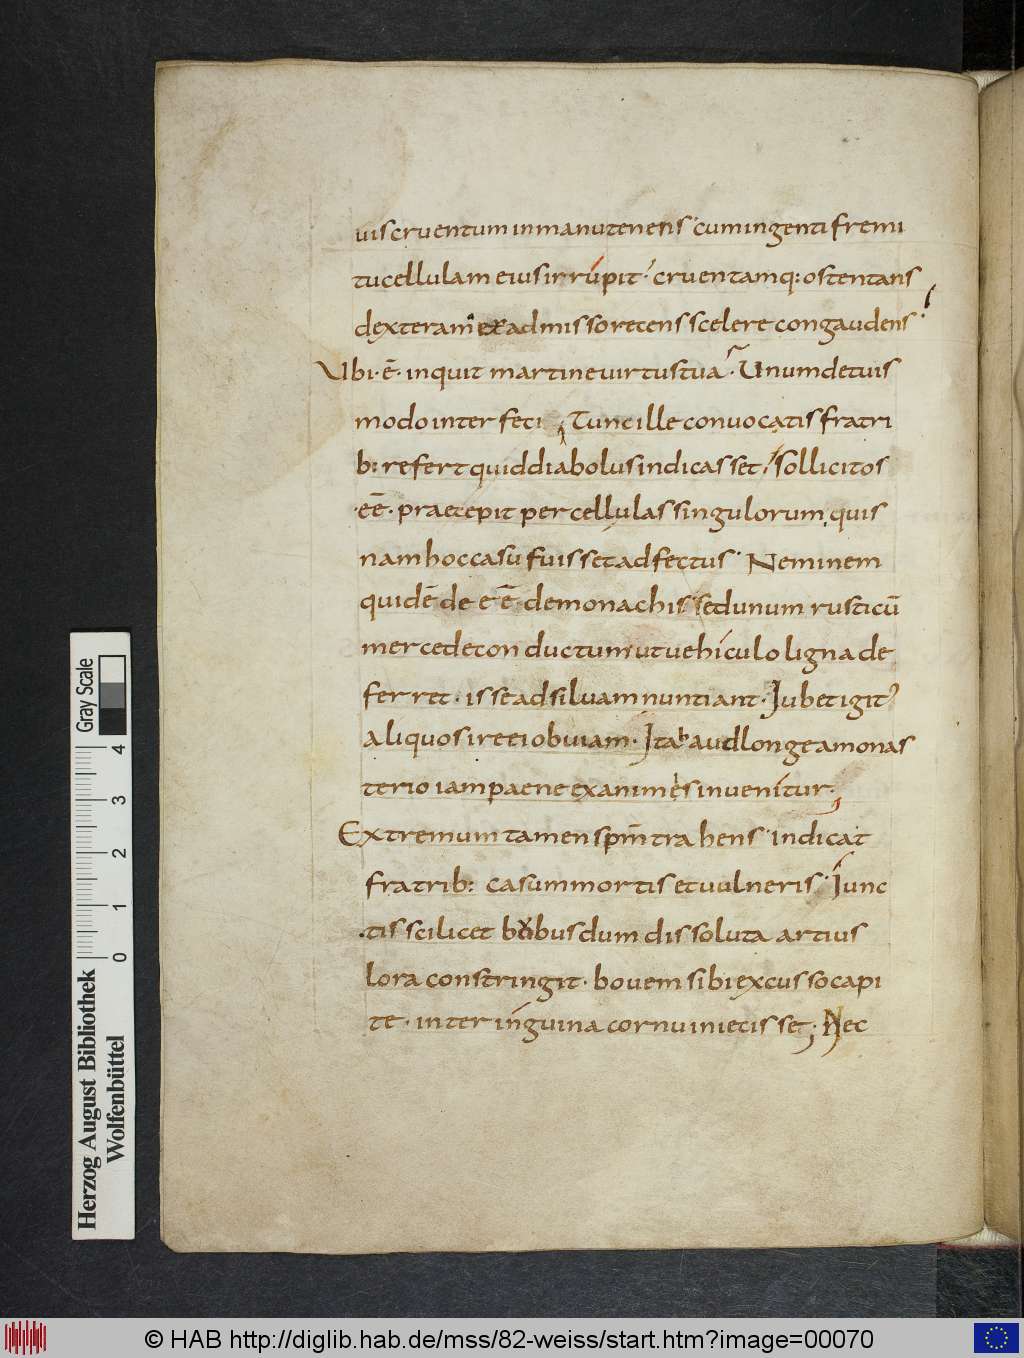 uis cruentum in manu tenens cum ingenti fremi
tu cellulam eius irrupit cruentamq: ostentans
dexteram ex admisso recens scelere congaudens
Ubi · ē · inquit martine uirtus tua · Unum de tuis
modo interfeci Tunc ille conuocatis fratri
b: refert quid diabolus indicasset, sollicitos
· eē · praecepit per cellulas singulorum, quis
nam hoc casu fuisset adfectus · Neminem
quidē deeē de monachis sed unum rusticū
mercede conductum ut uehiculo ligna de
ferret · isse ad siluam nuntiant · Jubet igit
aliquos ire ei obuiam · Ita haud longe a monas
terio iam paene exanimis inuenitur ·
Extremum tamen spm̄ trahens indicat
fratrib: casum mortis et uulneris · iunc
tis scilicet bobus dum dissoluta artius
lora constringit · bouem sibi excusso capi
te · inter inguina cornu iniecisset ; Nec
Herzog August Bibliothek
Wolfenbüttel
0 1 2 3 4
Gray Scale
© HAB http://diglib.hab.de/mss/82-weiss/start.htm?image=00070